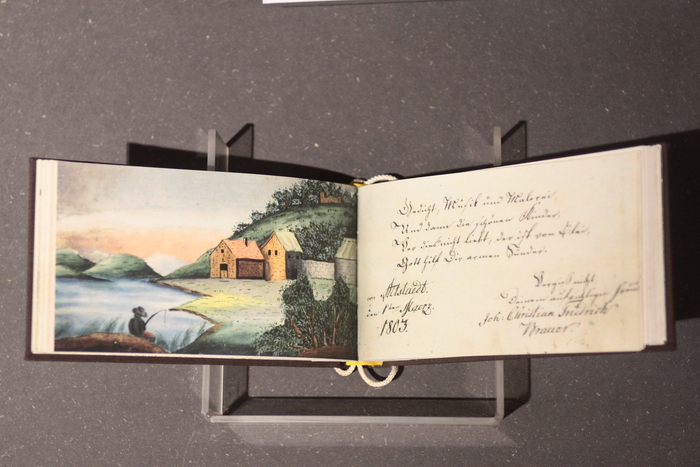 Gedicht, Musik und Malerei,
Und dann die schönen Kinder,
Wer dies nicht liebt, der ist von Blei,
Gott helf Dir armen Sünder.
Altstaedt.
im 1ten Maerz
1803
Vergiß nicht
Deinen aufrichtigen Freund
Joh. Christian Friedrich
Brauer